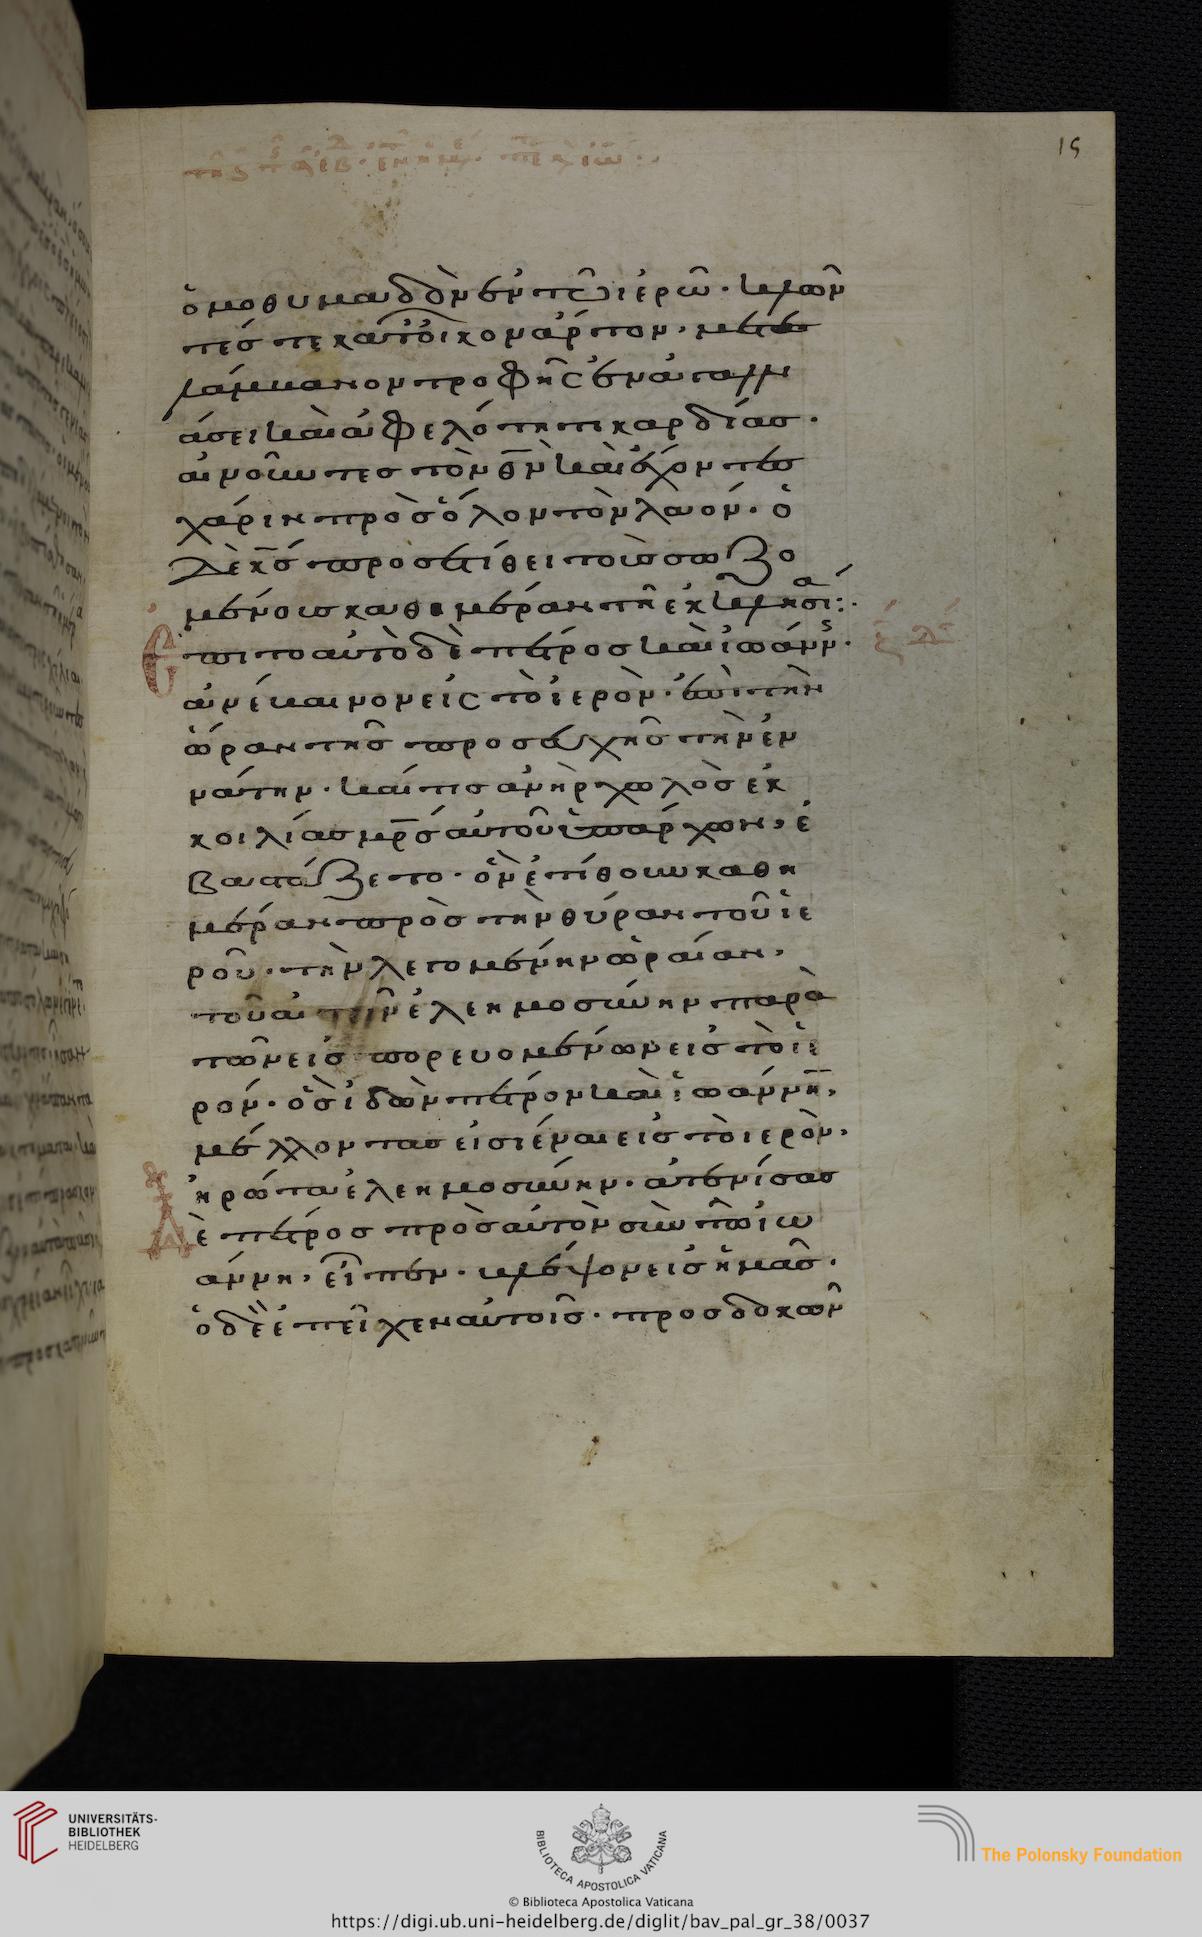 15
ὁμοθυμαδδὸν ἐν τῶ ἱερῶ· κλῶν
τές τε κατ' οἶκον ἄρτον, μετε
λάμβανον τροφῆς ἐν ἀγαλλι
άσει καὶ ἀφελότητι καρδίας·
αἰνοῦντες τὸν θ̅ν̅ καὶ ἔχοντες
χάριν πρὸς ὅλον τὸν λαόν· ὁ
δὲ κ̅ς̅ προσετίθει τοὺς σωζο
μένους καθ' ημέραν τῆ ἐκκλησία:·
Ἐπι τοαυτὸ δὲ πέτρος καὶ ἰωάννης·
ἀνέβαινον εἰς τὸ ἱερὸν· ἐπὶ τὴν
ὥραν τῆς προσευχῆς τὴν ἐν
νάτην· καί τις ἀνὴρ χωλὸς ἐκ
κοιλίας μ̅ρ̅ς̅ αὐτοῦ ὑπάρχων, ἐ
βαστάζετο· ὃν ἐτίθουν καθη
μέραν πρὸς τὴν θύραν τοῦ ἱε
ροῦ· τὴν λεγομένην ὡραίαν,
τοῦ αἰτεῖν ἐλεημοσύνην παρὰ
τῶν εἰσπορευομένων εἰς τὸ ἱε
ρόν· ὃς ἰδὼν πέτρον καὶ ἰωάννην,
μέλλοντας εἰσιέναι εἰς τὸ ἱερὸν,
ἠρώτα ἐλεημοσύνην· ἀτενίσας
Δὲ πέτρος πρὸς αὐτὸν σὺν τῶ ἰω
άννη, εἶπεν· βλέψον εἰς ἡμᾶς·
ὁ δὲ ἐπεῖχεν αὐτοῖς· προσδοκῶν
UNIVERSITÄTS-
BIBLIOTHEK
HEIDELBERG
BIBLIOTECA APOSTOLICA VATICANA
The Polonsky Foundation
© Biblioteca Apostolica Vaticana
https://digi.ub.uni-heidelberg.de/diglit/bav_pal_gr_38/0037